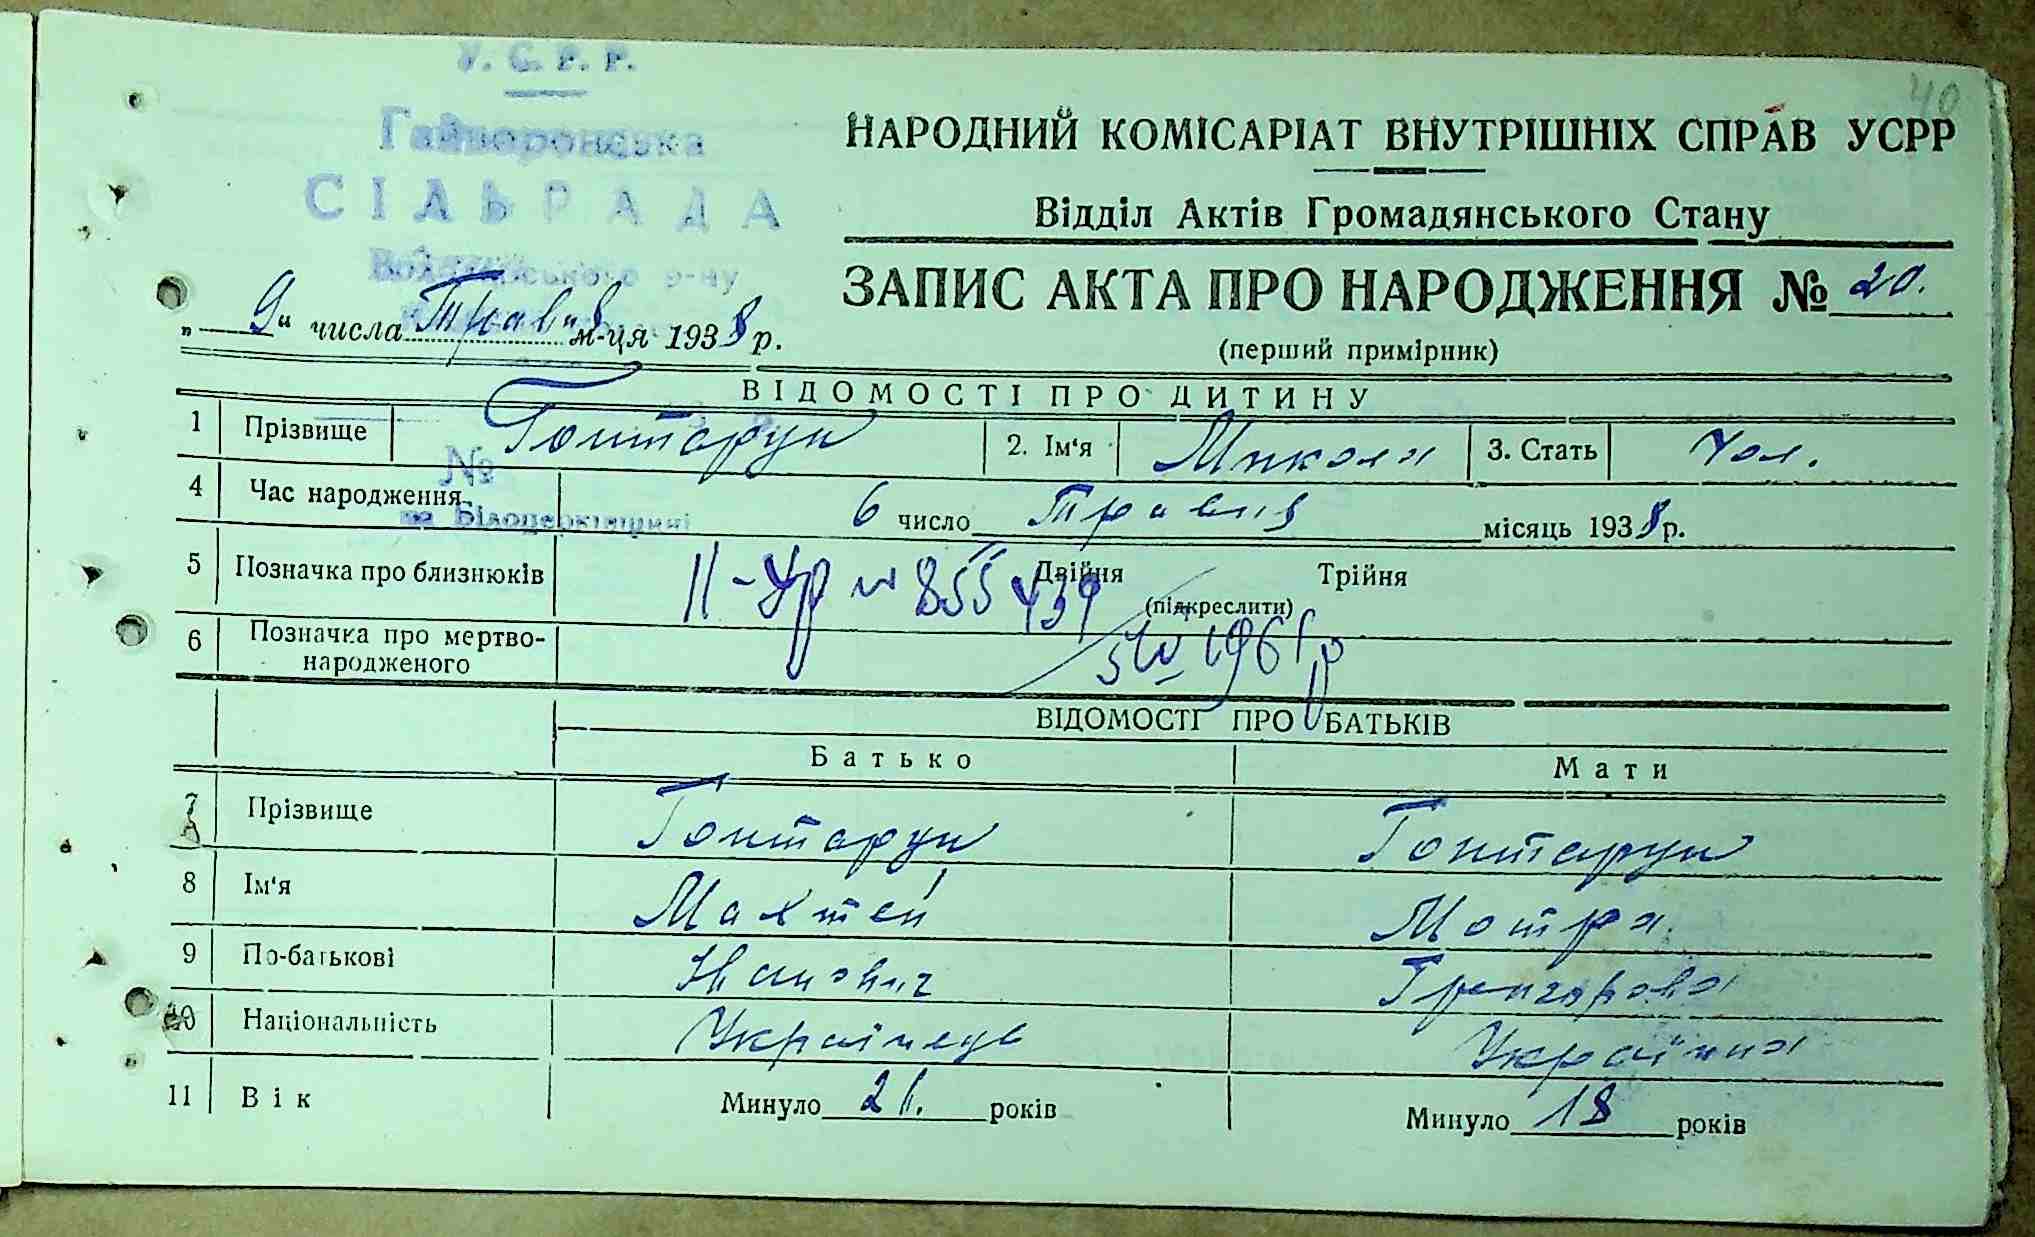 40
У. С. Р. Р.
Гайворонська
СІЛЬРАДА
р-ну
НАРОДНИЙ КОМІСАРІАТ ВНУТРІШНІХ СПРАВ УСРР
Відділ Актів Громадянського Стану
ЗАПИС АКТА ПРО НАРОДЖЕННЯ № 20.
(перший примірник)
„ 9 “ числа Травня м-ця 1938 р.
ВІДОМОСТІ ПРО ДИТИНУ
1 Прізвище Гонтарук 2. Ім‘я Микола 3. Стать Чол.
№
4 Час народження 6 число Травня місяць 1938 р.
на Білоцерківщині
5 Позначка про близнюків Двійня Трійня
(підкреслити)
ІІ-УР № 855439
6 Позначка про мертво-
народженого
1961 р
ВІДОМОСТІ ПРО БАТЬКІВ
Батько Мати
7 Прізвище Гонтарук Гонтарук
8 Ім‘я Махтей Мотря.
9 По-батькові Іванович
10 Національність Українець Українка
11 Вік Минуло 21. років Минуло 18 років